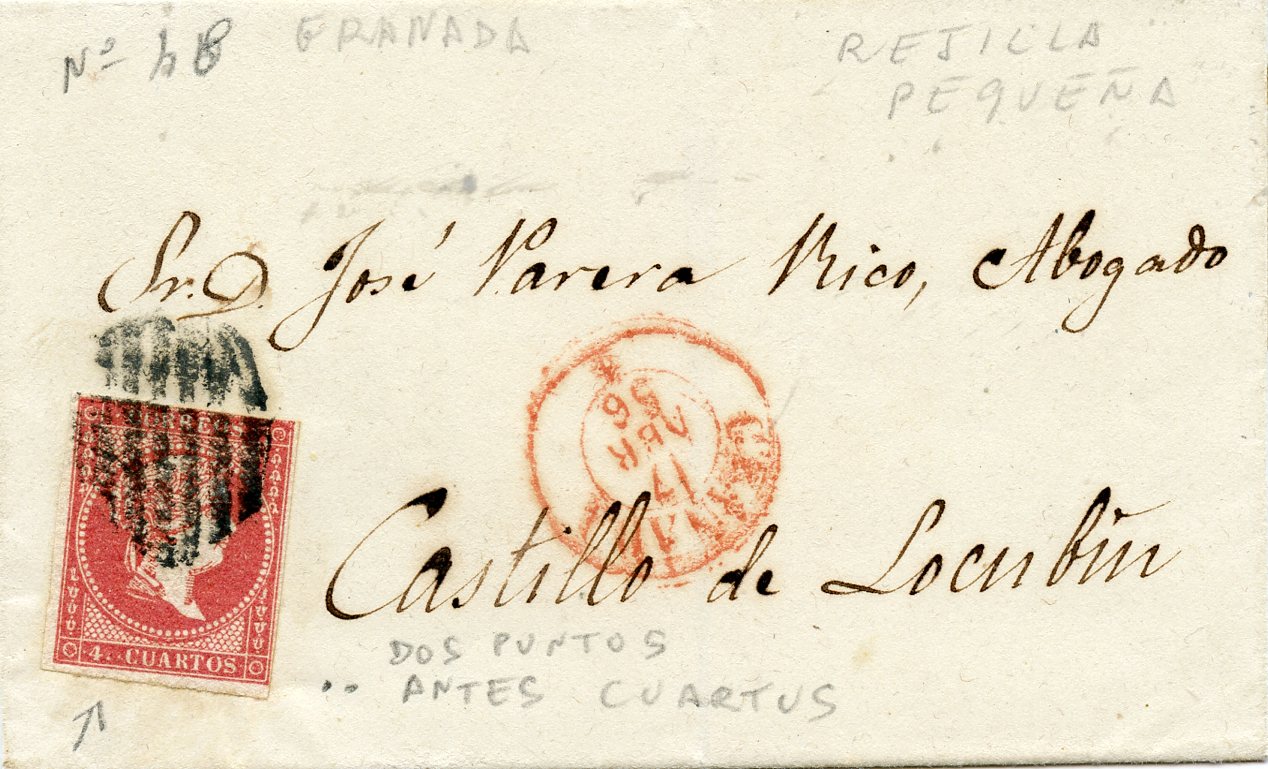 Nº 48 GRANADA
REJILLA
PEQUEÑA
Sr. D. José Parera Rico, Abogado
GRANADA
17
ABR
56
Castillo de Locubin
CORREOS
4.. CUARTOS
DOS PUNTOS
.. ANTES CUARTUS